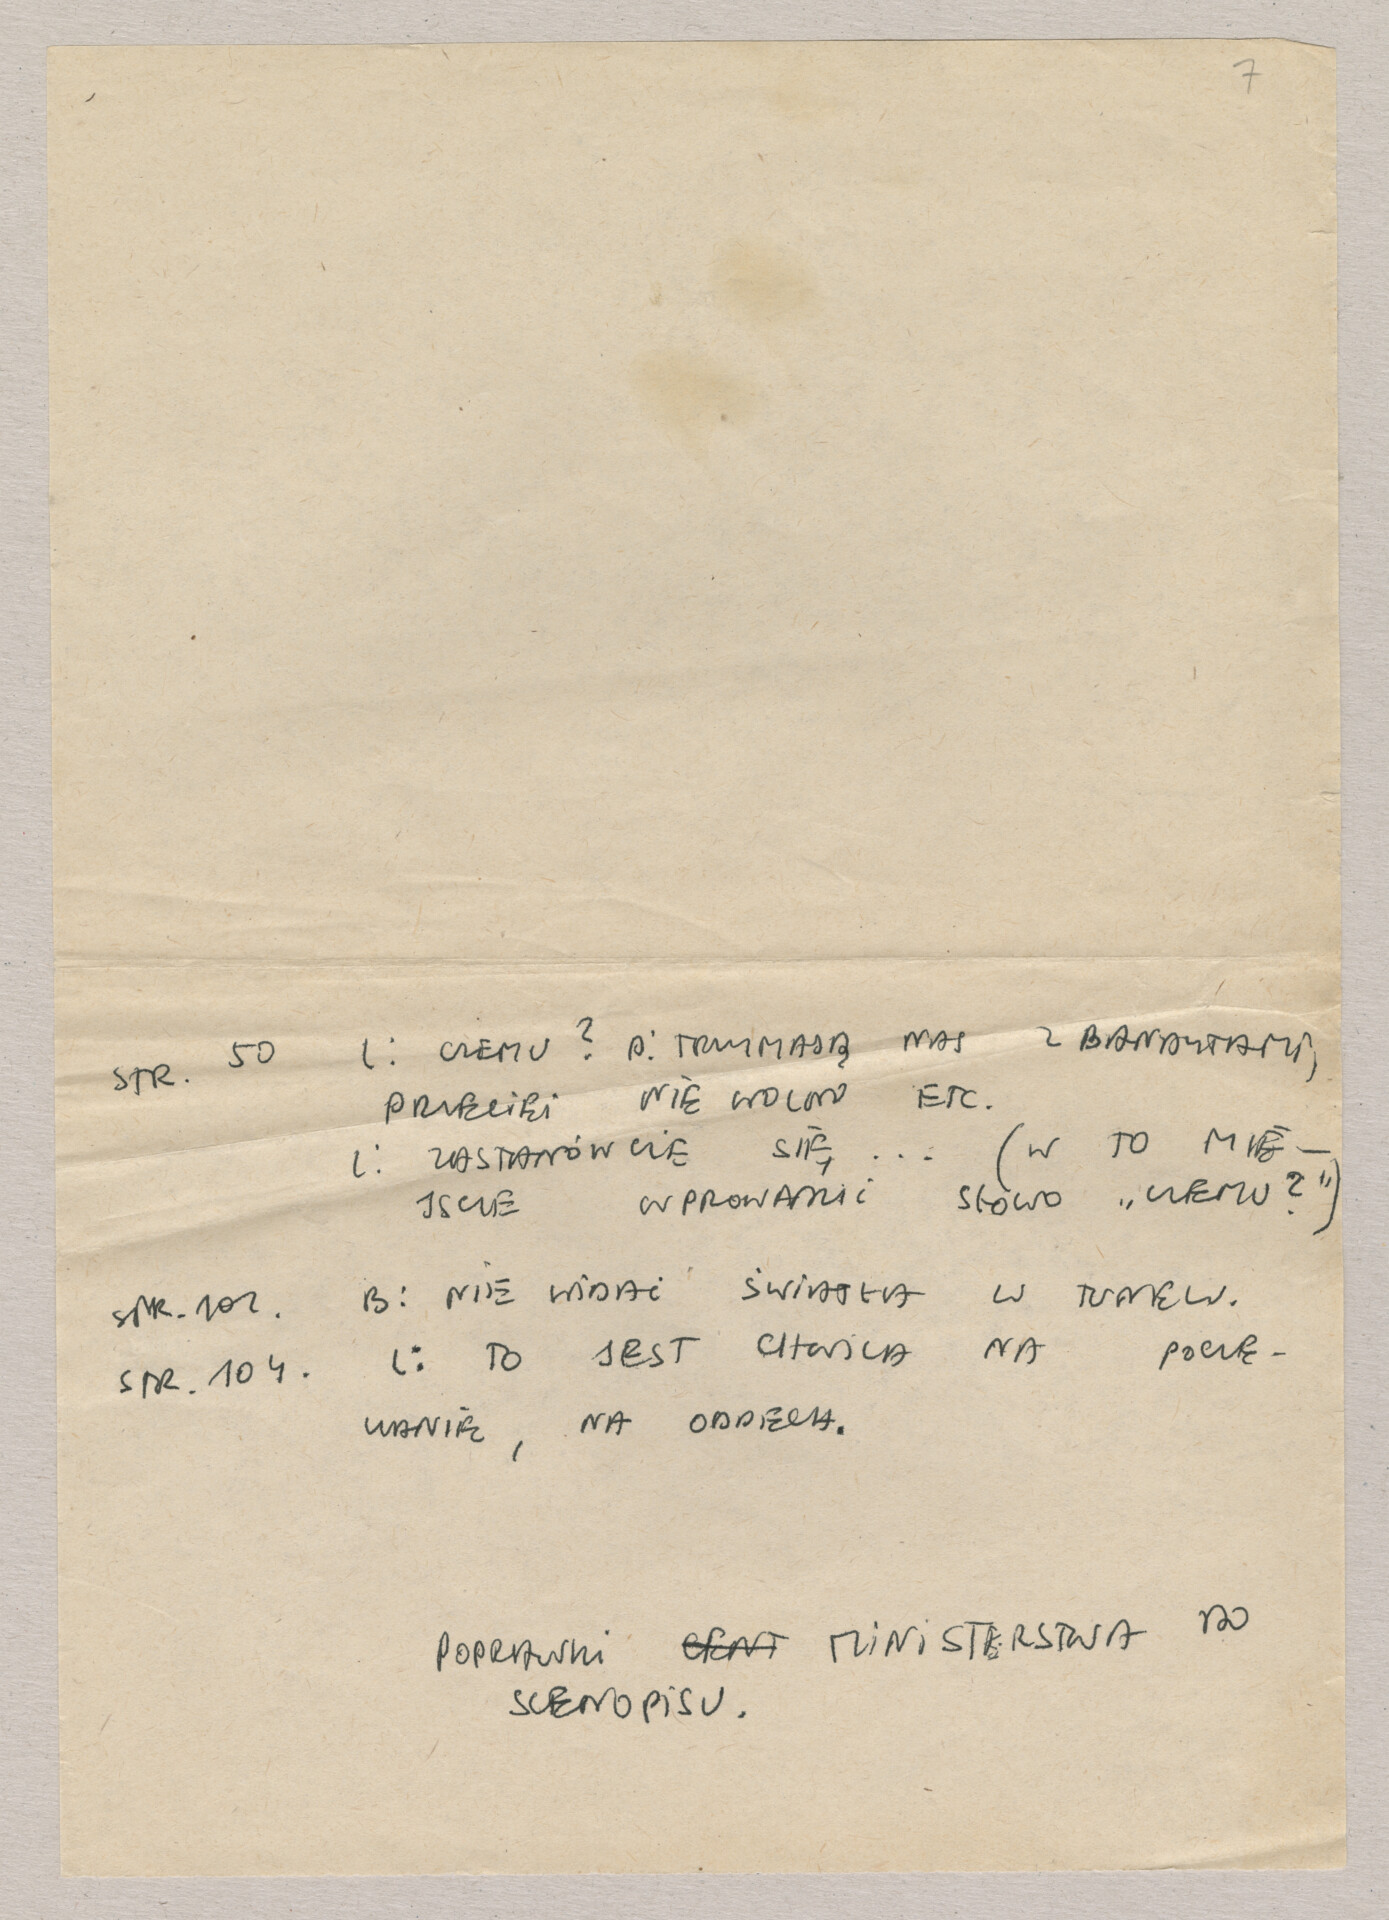 7
STR. 50 L: CZEMU? P: TRZYMAJĄ NAS Z BANDYTAMI,
PRZECIEŻ NIE WOLNO ETC.
L: ZASTANÓWCIE SIĘ, ... (W TO MIE-
JSCE WPROWADZIĆ SŁOWO „CZEMU?")
STR. 102. B: NIE WIDAĆ ŚWIATŁA W TUNELU.
STR. 104. L: TO JEST CHWILA NA POCZE-
KANIE, NA ODDECH.
POPRAWKI CENT MINISTERSTWA DO
SCENOPISU.